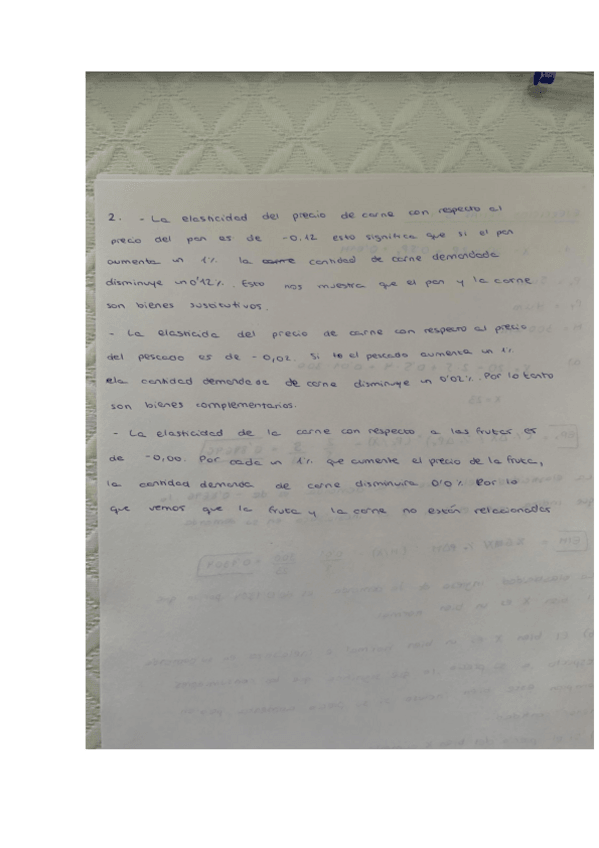 2. - La elasticidad del precio de carne con respecto al
precio del pan es de -0,12 esto significa que si el pan
aumenta un 1% la cantidad de carne demandada
disminuye un 0'12%. Esto nos muestra que el pan y la carne
son bienes sustitutivos.
- La elasticida del precio de carne con respecto al precio
del pescado es de -0,02. Si el pescado aumenta un 1%
la cantidad demandada de carne disminuye un 0'02%. Por lo tanto
son bienes complementarios.
- La elasticidad de la carne con respecto a las frutas es
de -0,00. Por cada un 1% que aumente el precio de la fruta,
la cantidad demanda de carne disminuira 0'0% Por lo
que vemos que la fruta y la carne no están relacionados